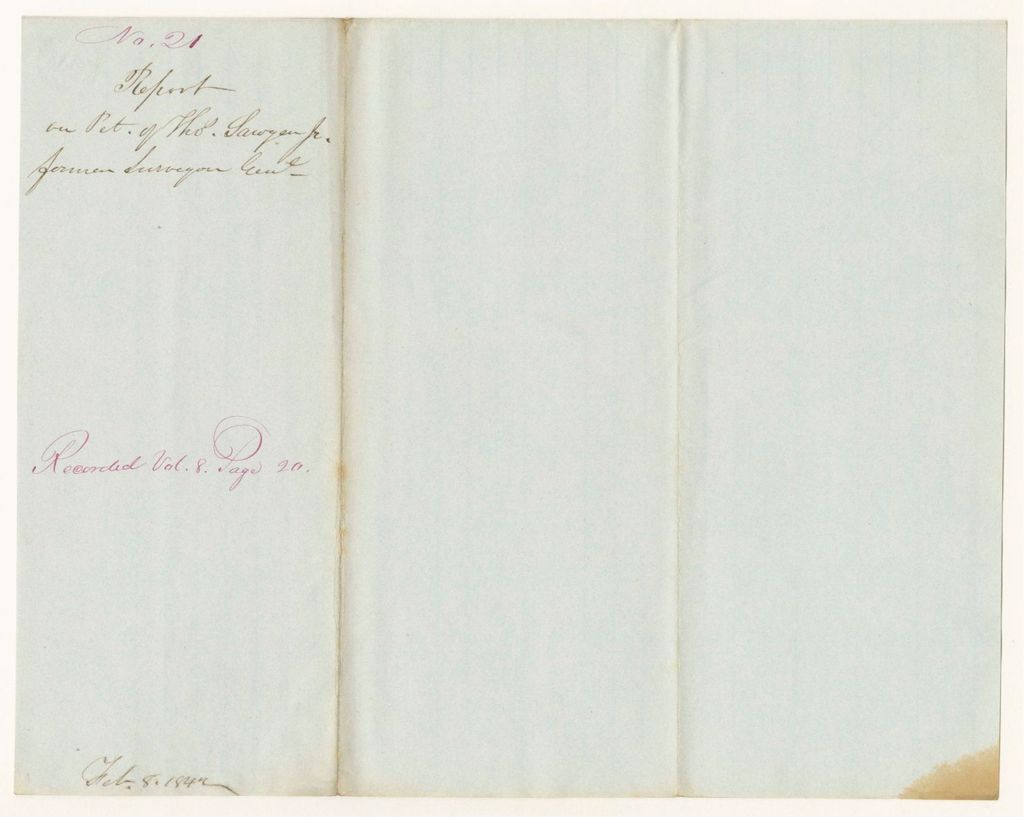 No. 21
Report
on Pet. of Thos. Sawyer Jr.
former Surveyor Genl
Recorded Vol. 8. Page 20.
Feb. 8. 1842